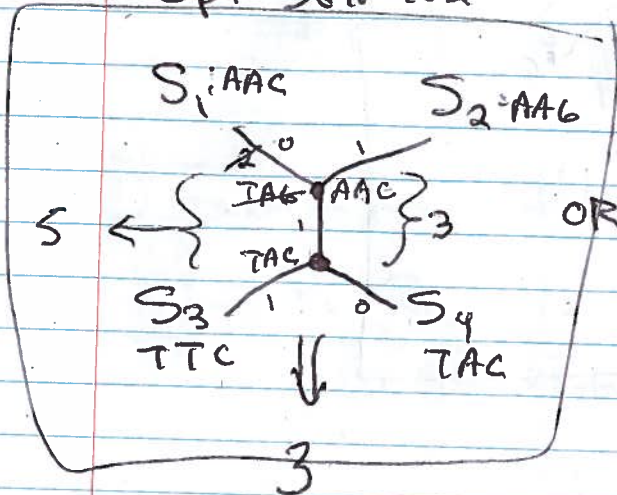 S1: AAC
S2: AAG
2 0 1
TAG AAC
5 1 3 OR
TAC
S3 1 0 S4
TTC TAC
3